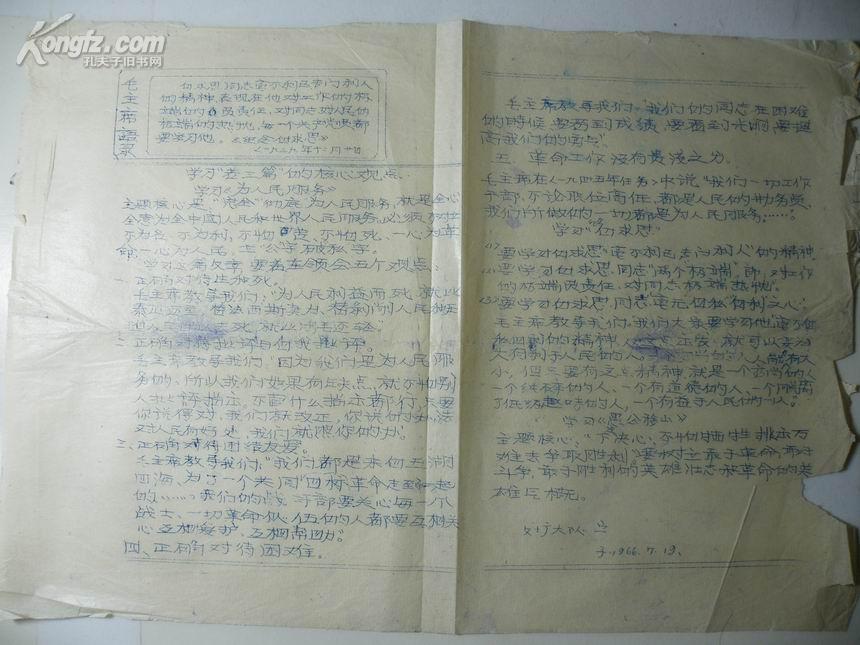 Kongfz.com
孔夫子旧书网
毛主席語录
白求恩同志毫不利己专门利人
的精神,表现在他对工作的极
端的负责任,对同志对人民的
极端的热忱,每一个共产党员都
要学习他。《纪念白求恩》
一九三九年十二月廿一日
学习"老三篇"的核心观点
学习《为人民服务》
主题核心是"完全"彻底为人民服务,就是全心
全意为全中国人民和世界人民服务,必须树立
不为名、不为利、不怕苦、不怕死、一心为革
命,一心为人民,立"公"字破私字。
学习这篇文章,要着重领会五个观点:
一、正确对待生和死。
毛主席教导我们:"为人民利益而死,就比
泰山还重;替法西斯卖力,替剥削人民和压
迫人民的人去死,就比鸿毛还轻。"
二、正确对待批评与自我批评。
毛主席教导我们"因为我们是为人民服
务的,所以我们如果有缺点,就不怕别
人批评指出,不管什么人指出都行,只要
你说得对,我们就改正,你说的办法
对人民有好处,我们就照你的办"。
三、正确对待团结友爱。
毛主席教导我们:"我们都是来自五湖
四海,为了一个共同的目标革命走到一起
的……我们的干部要关心每一个
战士,一切革命队伍的人都要互相关
心,互相爱护,互相帮助。"
四、正确对待困难。
毛主席教导我们:"我们的同志在困难
的時候,要看到成绩,要看到光明,要提
高我们的勇气"
五、革命工作没有贵浅之分。
毛主席在《一九四五年任务》中说"我们一切工作
干部,不论职位高低,都是人民的勤务员,
我们所做的一切都是为人民服务……"。
学习"纪念白求恩"
(1)要学习白求恩"毫不利己专门利人"的精神
(2)要学习白求恩同志"两个极端"即:对工作
的极端负责任,对同志极端热忱。
(3)要学习白求恩同志毫无自私自利之心:
毛主席教导我们"我们大家要学习他"毫无自
私自利的精神,从这点出发,就可以变为
大有利于人民的人。一个人能力有大
小,但只要有这点精神,就是一个高尚的人
一个纯粹的人、一个有道德的人,一个脱离
了低级趣味的人,一个有益于人民的人。"
学习《愚公移山》
主题核心:"下决心,不怕牺牲,排除万
难去争取胜利"要树立敢于革命,敢于
斗争,敢于胜利的英雄壮志和革命的英
雄气概。
大队
1966.7.19.